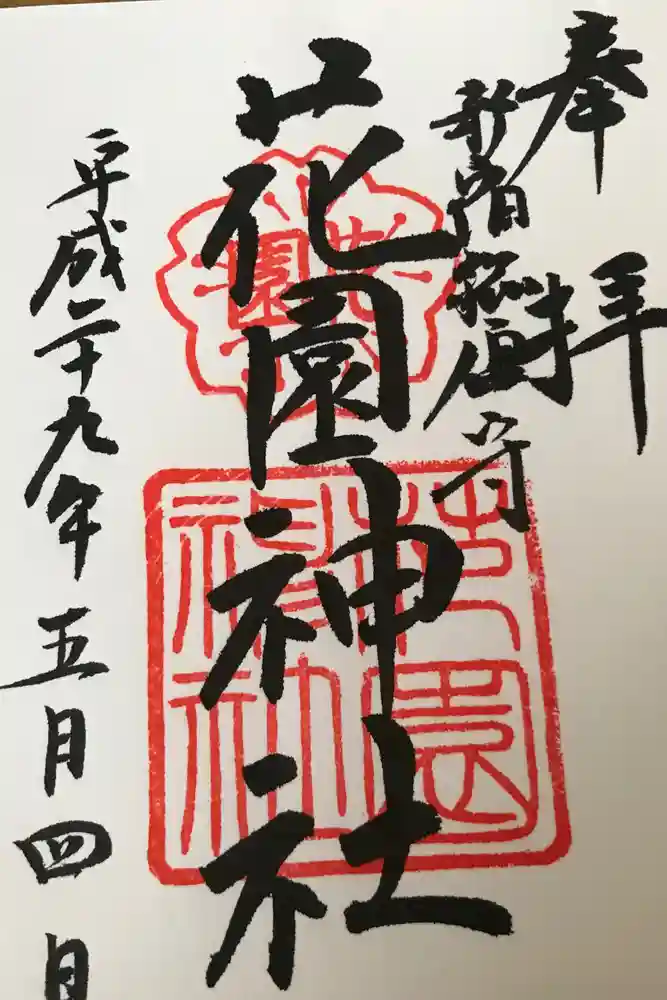 奉拝
新宿総鎮守
花園神社
平成二十九年五月四日
花園神社